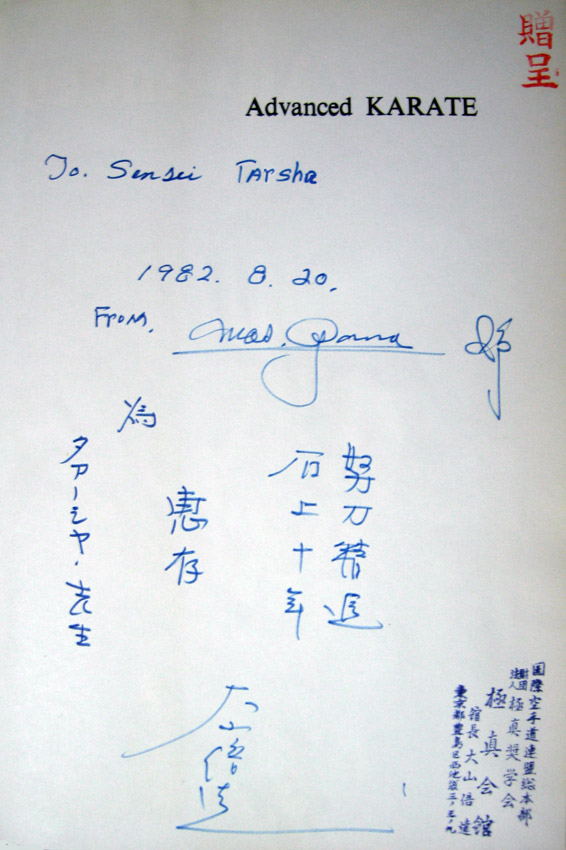 贈呈
Advanced KARATE
To. Sensei TArsha
1982. 8. 20.
From. Mas. Oyama
努力精進
石上十年
恵存
為
タアーシヤ・先生
大山倍達
国際空手道連盟総本部
財団法人 極真奨学会
極真会館
館長 大山倍達
東京都豊島区西池袋三ノ三ノ九